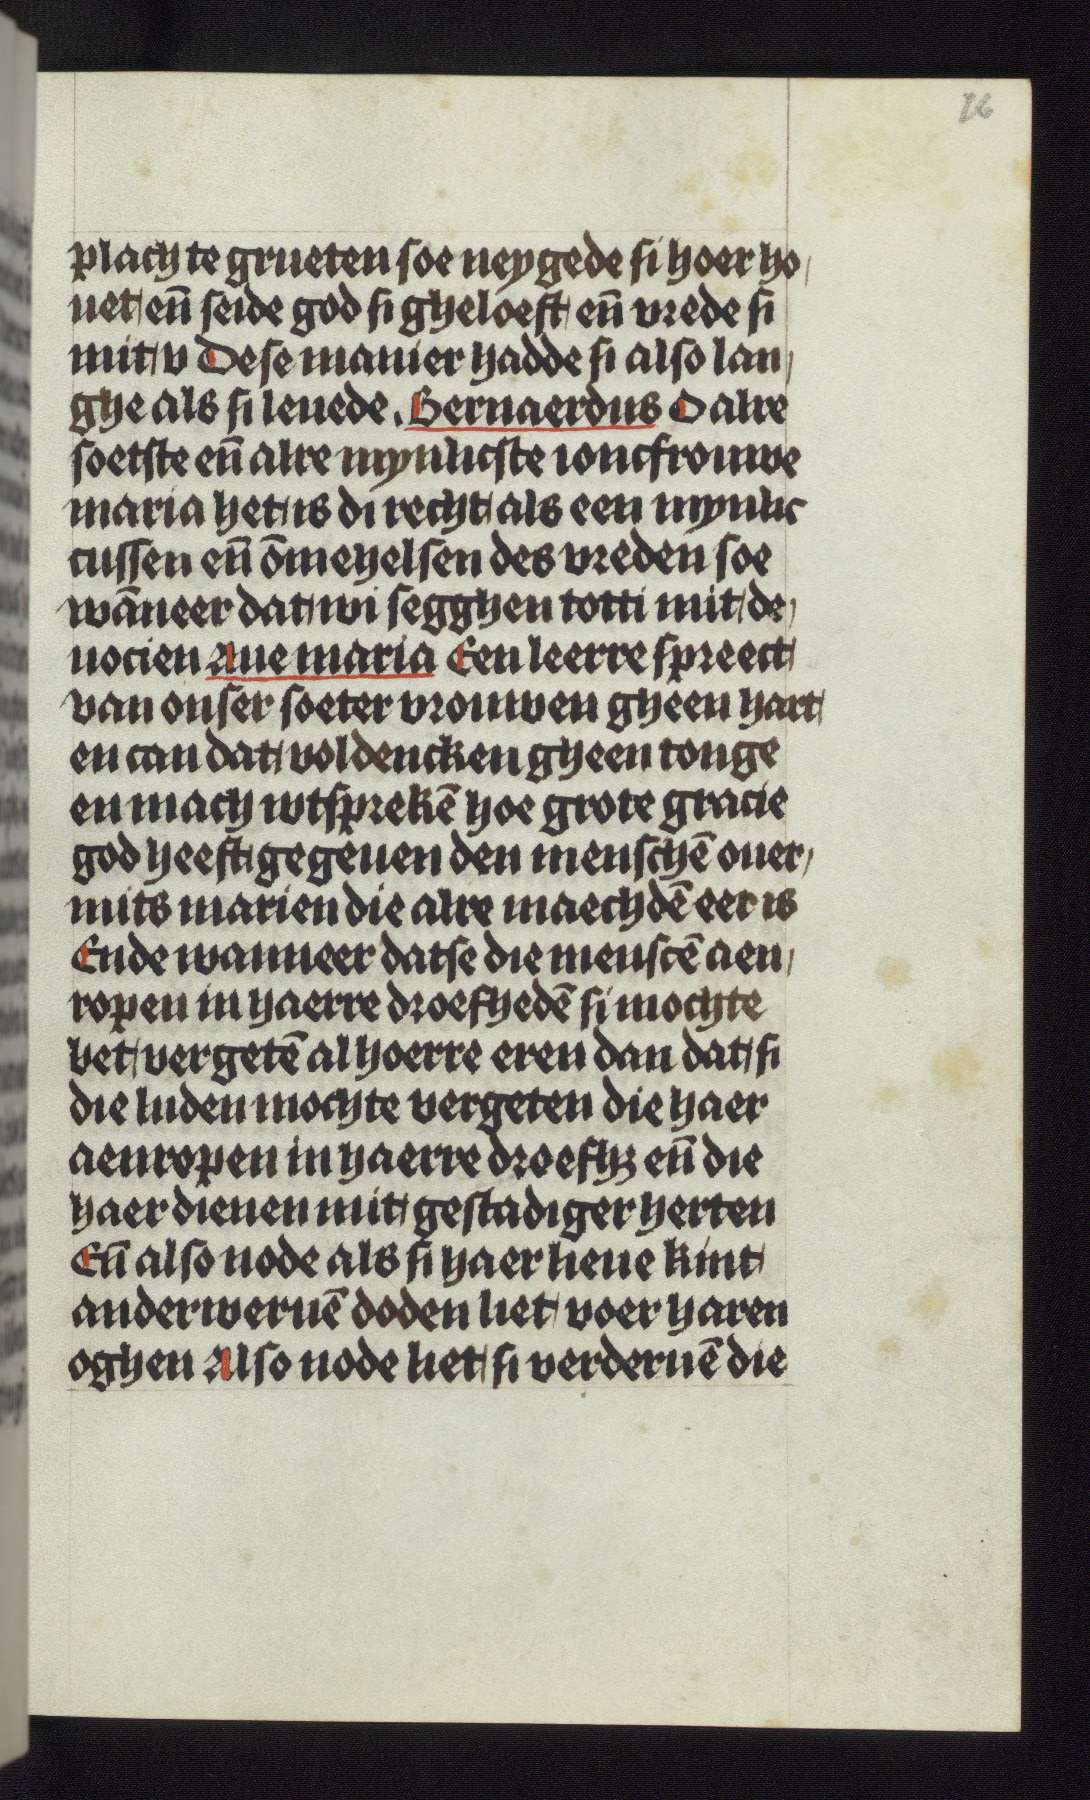 26
plach te grueten soe neygede si hoer ho
uet en̄ seide god si gheloeft en̄ vrede si
mit v Dese manier hadde si also lan
ghe als si leuede. Bernaerdus O alre
soetste en̄ alre mynlicste ioncfrouwe
maria het is di recht als een mynlic
cussen en̄ ōmehelsen des vreden soe
wāneer dat wi segghen totti mit de
uocien Aue maria Een leerre spreect
van onser soeter vrouwen gheen hart
en can dat voldencken gheen tonge
en mach wtsprekē hoe grote gracie
god heeft gegeuen den menschē ouer
mits marien die alre maechdē eer is
Ende wanneer datse die menscē aen
ropen in haerre droefhedē si mochte
bet vergetē al hoerre eren dan dat si
die luden mochte vergeten die haer
aenropen in haerre droefhꝫ en̄ die
haer dienen mit gestadiger herten
En̄ also node als si haer lieue kint
anderweruē doden liet voer haren
oghen Also node liet si verderuē die